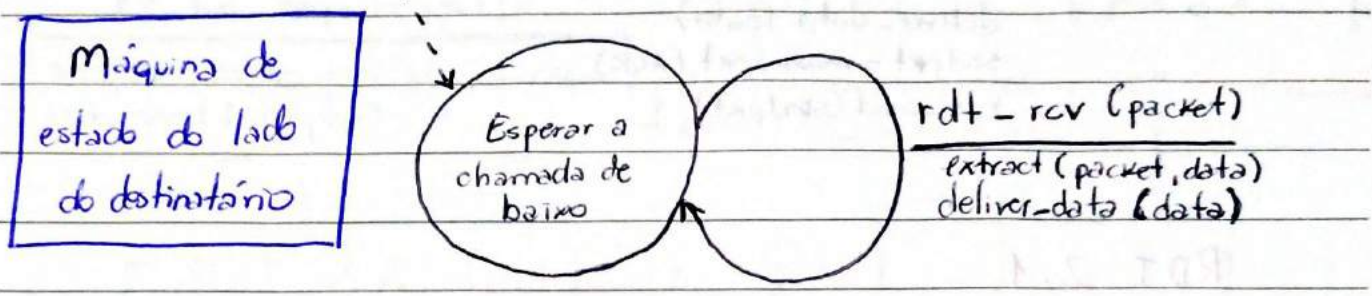 Máquina de
estado do lado
do destinatário
Esperar a
chamada de
baixo
rdt_rcv (packet)
extract (packet, data)
deliver_data (data)
RDT 2.1